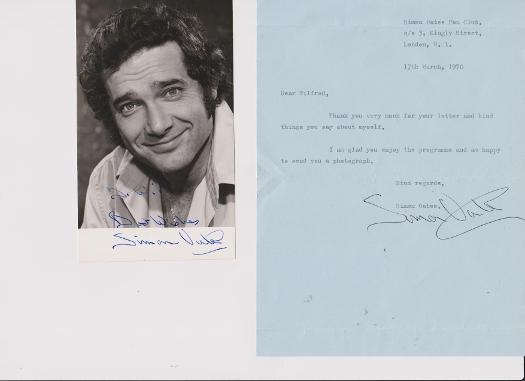 Best Wishes
Simon Oates
Simon Oates Fan Club,
c/o 3, Kingly Street,
London, W. 1.
17th March, 1970
Dear Wilfred,
Thank you very much for your letter and kind
things you say about myself.
I am glad you enjoy the programme and am happy
to send you a photograph.
Kind regards,
Simon Oates.
Simon Oates